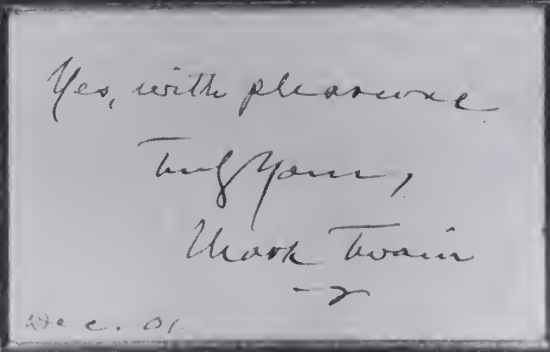 Yes, with pleasure
Truly Yours,
Mark Twain
Dec. 01.